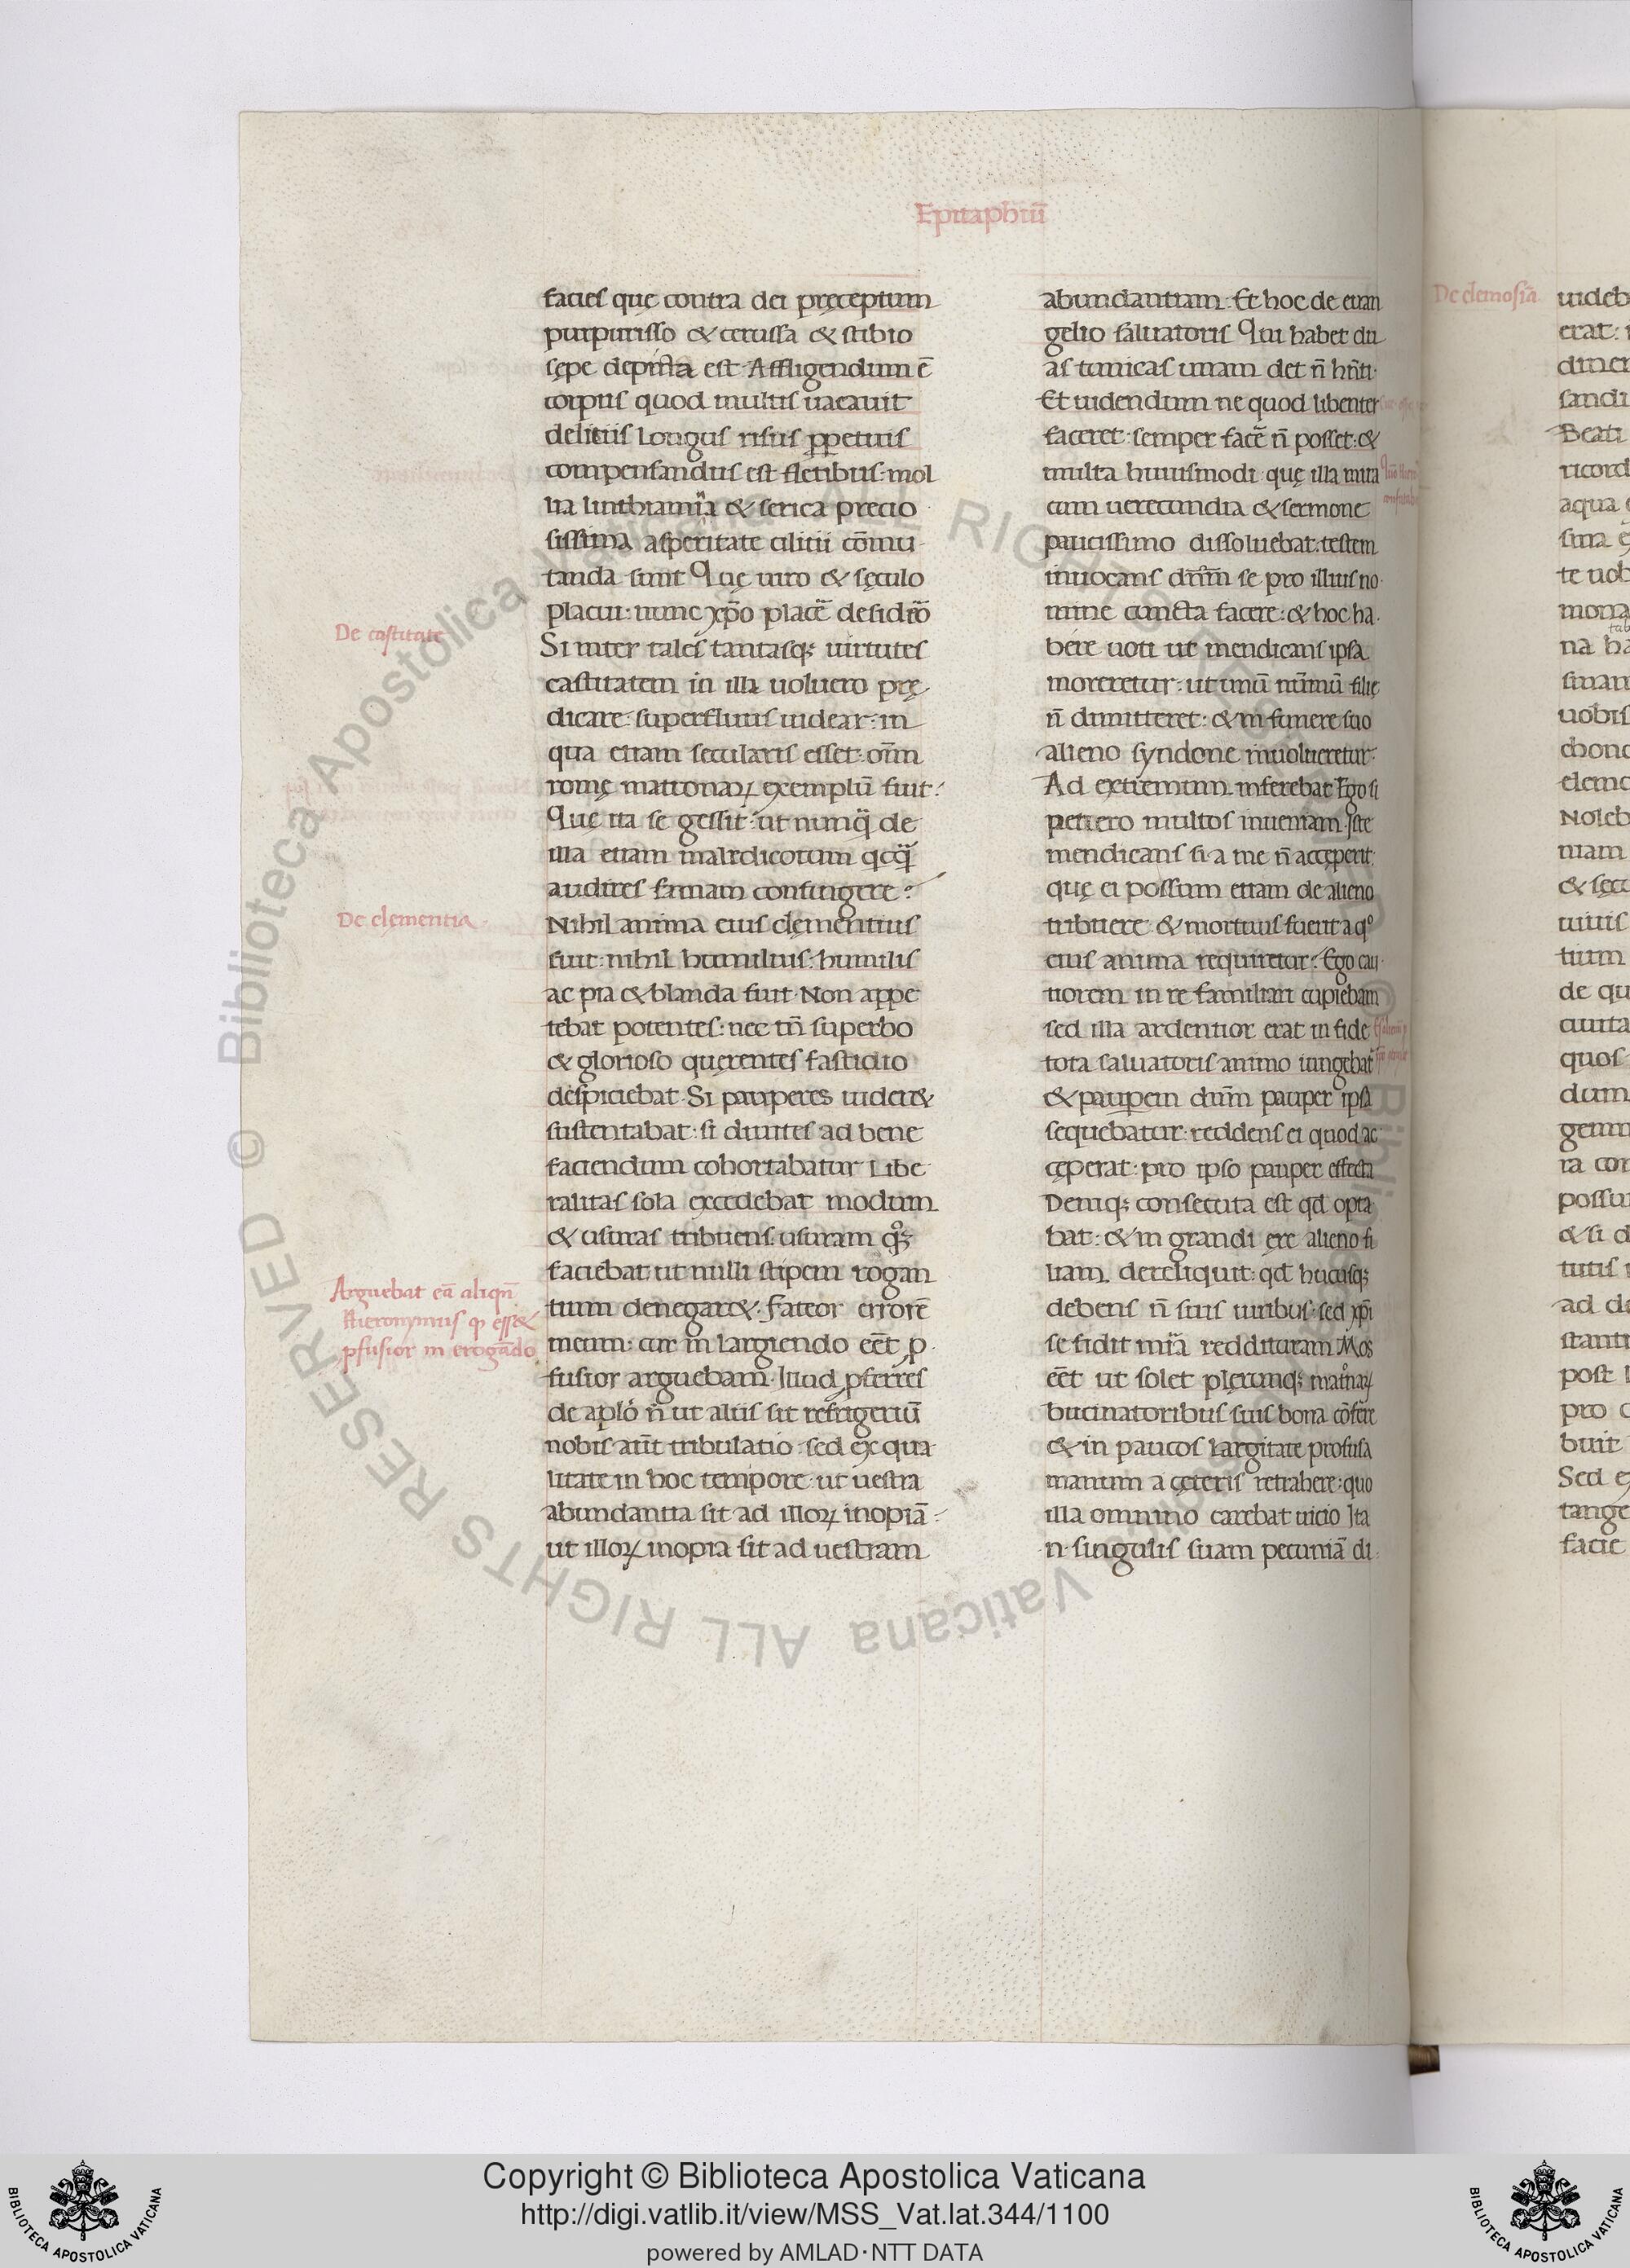 Epitaphiū
facies quę contra dei pręceptum
purpurisso & cerussa & stibio
sępe depicta est Affligendum ē
corpus quod multis uacauit
delitiis Longus risus ꝑpetuis
compensandus est fletibus: mol
lia linthiamīa & serica precio
sissima asperitate cilitii cōmu
tanda sunt Quę uiro & sęculo
placui: nunc xp̄o placē desidio
De castitate
Si inter tales tantasq; uirtutes
castitatem in illa uoluero prę
dicare: superfluus uidear: in
qua etiam secularis esset: om̄m
romę matronaꝝ exemplū fuit:
Quę ita se gessit: ut nunq̄ de
illa etiam maledicorum qcq̄
audires famam confingere:
De clementia
Nihil anima eius clęmentius
fuit: nihil humilius: humilis
ac pia & blanda fuit Non appe
tebat potentes: nec tn̄ superbo
& glorioso quęrentes fastidio
despiciebat Si pauperes uider&
sustentabat: si diuites ad bene
faciendum cohortabatur Libe
ralitas sola excedebat modum
& usuras tribuens usuram qͦq;
faciebat ut nulli stipem rogan
Arguebat eā aliqn̄
Hieronymus ꝙ ess&
ꝓfusior in erogādo
tium denegar&. Fateor errorē
meum: cur in largiendo eēt ꝓ
fusior arguebam Illud ꝓferres
de aplo n̄ ut aliis sit refrigeriū
nobis aūt tribulatio: sed ex qua
litate in hoc tempore: ut uestra
abundantia sit ad illoꝝ inopiā
ut illoꝝ inopia sit ad uestram
abundantiam Et hoc de euan
gelio saluatoris Qui habet du
as tunicas unam det n̄ hn̄ti
Et uidendum ne quod libenter
faceret: semper facē n̄ posset: &
multa huiusmodi: quę illa mira
cum uerecundia & sermone
paucissimo dissoluebat: testem
inuocans dn̄m se pro illius no
mine cuncta facere: & hoc ha
bere uoti ut mendicans ipsa
moreretur: ut unū nūmū filię
n̄ dimitteret: & in funere suo
alieno syndone inuolueretur:
Ad extremum inferebat Ego si
petiero multos inueniam Iste
mendicans si a me n̄ acceperit:
quę ei possum etiam de alieno
tribuere & mortuus fuerit a qͦ
eius anima requiretur: Ego cau
tiorem in re familiari cupiebam
sed illa ardentior erat in fide
tota saluatoris animo iungebat
& pauꝑem dn̄m pauper ipsa
sequebatur: reddens ei quod ac
ceperat: pro ipso pauper effecta
Deniq; consecuta est qd opta
bat: & in grandi ęre alieno fi
liam dereliquit: qd hucusq;
debens n̄ suis uiribus: sed xp̄i
se fidit mīa reddituram Mos
eēt ut solet plerunq; matͦnaꝝ
bucinatoribus suis bona cōferre
& in paucos largitate profusa
manum a cęteris retrahere: quo
illa omnino carebat uicio Ita
n̄ singulis suam pecuniā di
De elemosīa